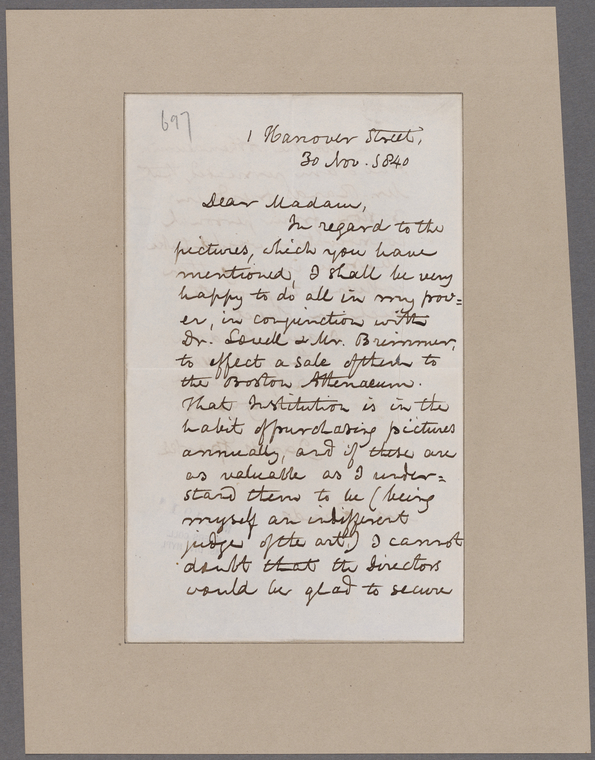 697
1 Hanover Street,
30 Nov. 1840
Dear Madam,
In regard to the
pictures, which you have
mentioned, I shall be very
happy to do all in my pow=
er, in conjunction with
Dr. Lowell & Mr. Brimmer,
to effect a sale of them to
the Boston Athenaeum.
That Institution is in the
habit of purchasing pictures
annually, and if these are
as valuable as I under=
stand them to be (being
myself an indifferent
judge of the art,) I cannot
doubt that the Directors
would be glad to secure